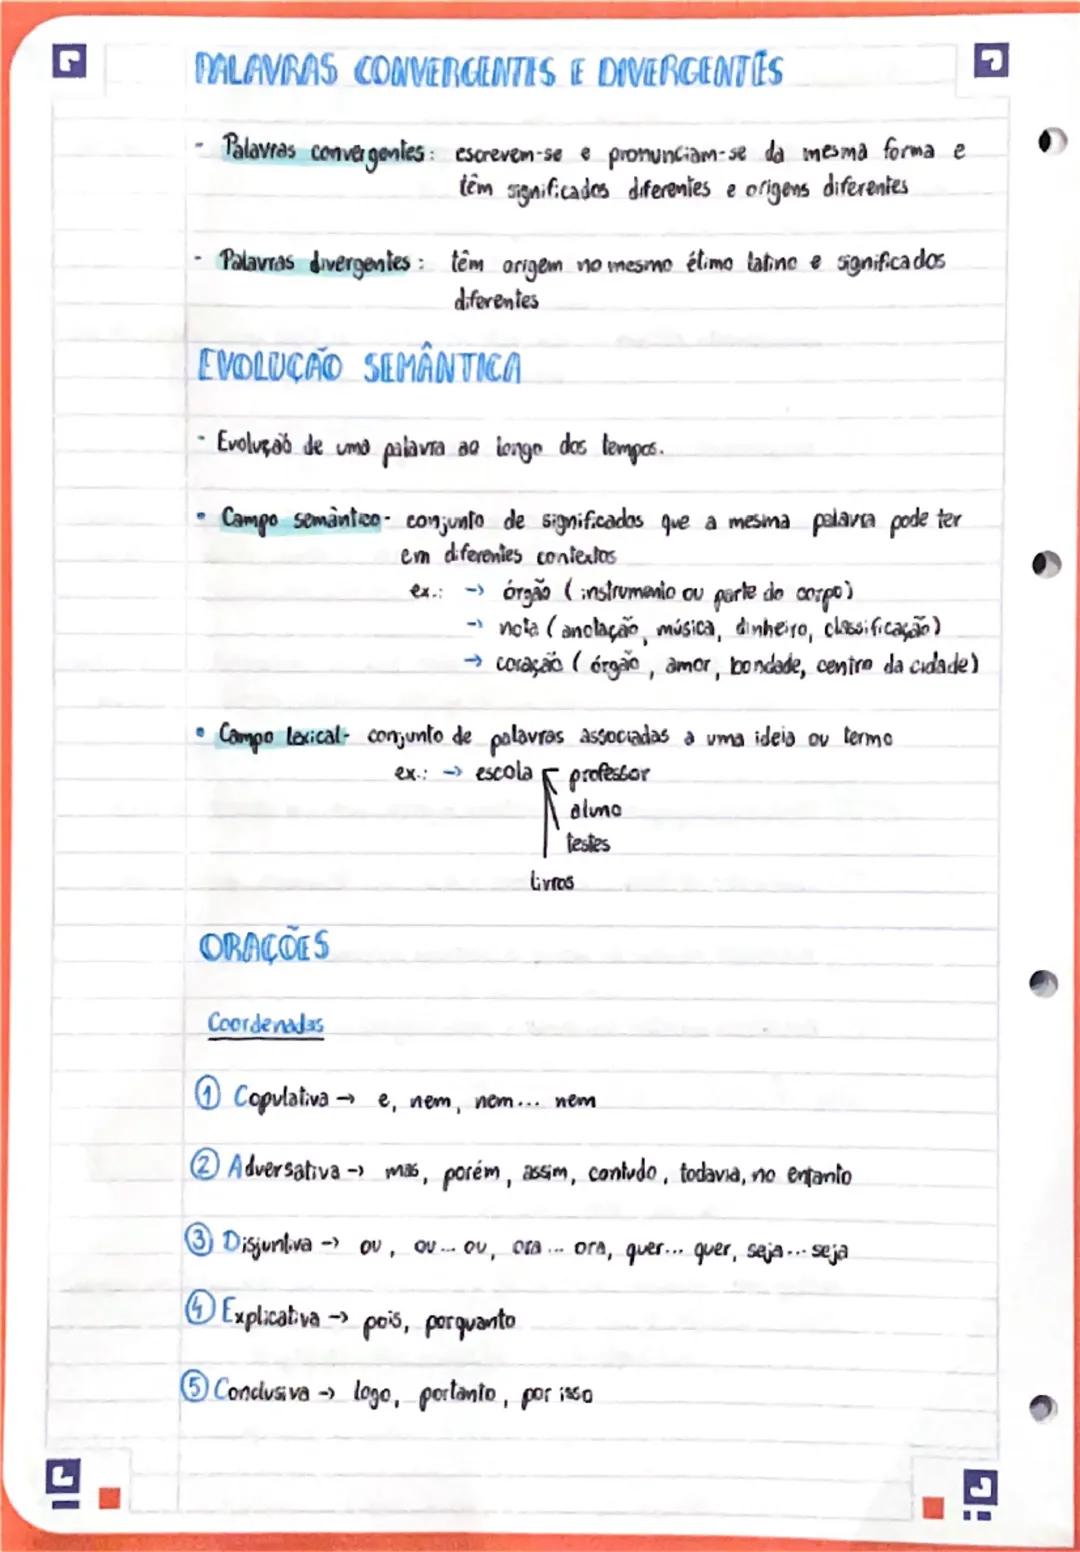 PALAVRAS CONVERGENTES E DIVERGENTES
- Palavras convergentes: escrevem-se e pronunciam-se da mesma forma e
têm significados diferentes e origens diferentes
- Palavras divergentes: têm origem no mesmo étimo latino e significados
diferentes
EVOLUÇÃO SEMÂNTICA
- Evolução de uma palavra ao longo dos tempos.
• Campo semântico - conjunto de significados que a mesma palavra pode ter
em diferentes contextos
ex.: → órgão (instrumento ou parte do corpo)
→ nota (anotação, música, dinheiro, classificação)
→ coração (órgão, amor, bondade, centro da cidade)
• Campo lexical - conjunto de palavras associadas a uma ideia ou termo
ex.: → escola professor
aluno
testes
livros
ORAÇÕES
Coordenadas
① Copulativa → e, nem, nem... nem
② Adversativa → mas, porém, assim, contudo, todavia, no entanto
③ Disjuntiva → ou, ou... ou, ora... ora, quer... quer, seja... seja
④ Explicativa → pois, porquanto
⑤ Conclusiva → logo, portanto, por isso